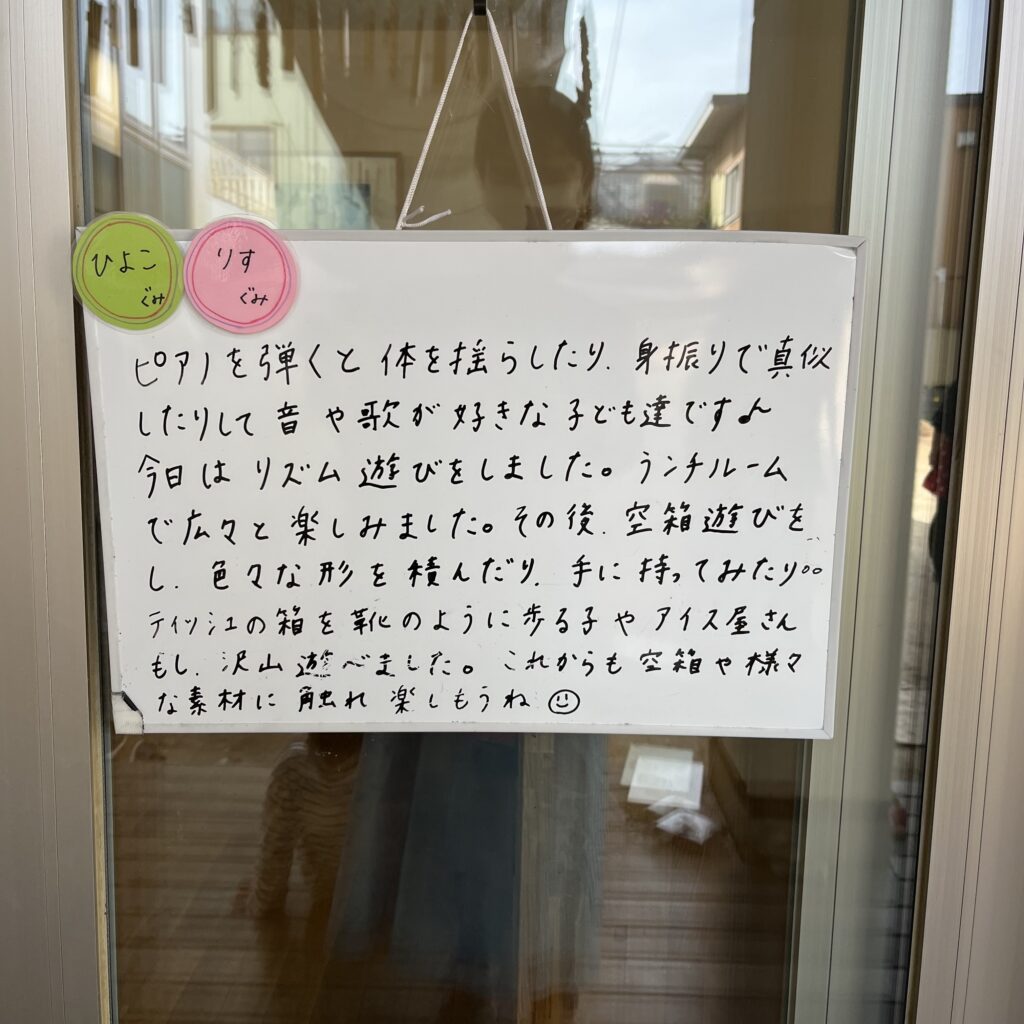 ひよこ
ぐみ
りす
ぐみ
ピアノを弾くと体を揺らしたり、身振りで真似
したりして音や歌が好きな子ども達です♪
今日はリズム遊びをしました。ランチルーム
で広々と楽しみました。その後、空箱遊びを
し、色々な形を積んだり、手に持ってみたり。。
ティッシュの箱を靴のように歩る子やアイス屋さん
もし、沢山遊べました。これからも空箱や様々
な素材に触れ楽しもうね☺